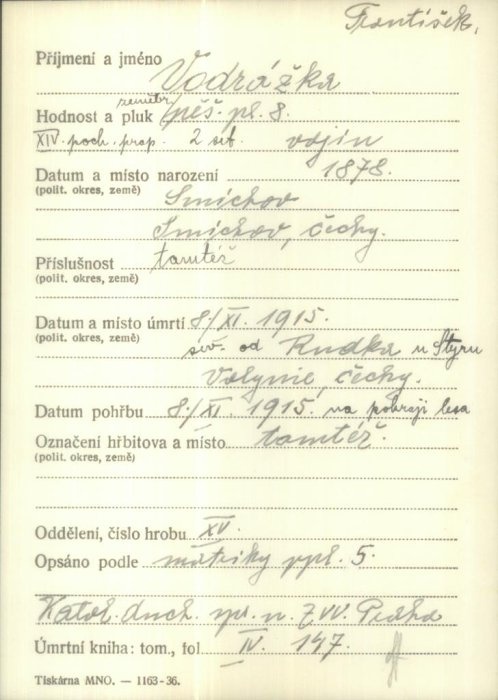 František.
Příjmení a jméno Vodrážka
zeměbr.
Hodnost a pluk pěš. pl. 8.
XIV. poch. prap. 2 set. vojín
Datum a místo narození 1878.
(polit. okres, země) Smíchov
Smíchov, čechy.
Příslušnost tamtéž
(polit. okres, země)
Datum a místo úmrtí 8./XI. 1915.
(polit. okres, země) sev. od Rudka u Styru
Volynie, čechy.
Datum pohřbu 8./XI. 1915. na pokraji lesa
Označení hřbitova a místo tamtéž.
(polit. okres, země)
Oddělení, číslo hrobu XV.
Opsáno podle matriky ppl. 5.
Katol. duch. spr. n. ZVV. Praha
Úmrtní kniha: tom., fol IV. 147.
Tiskárna MNO. — 1163-36.